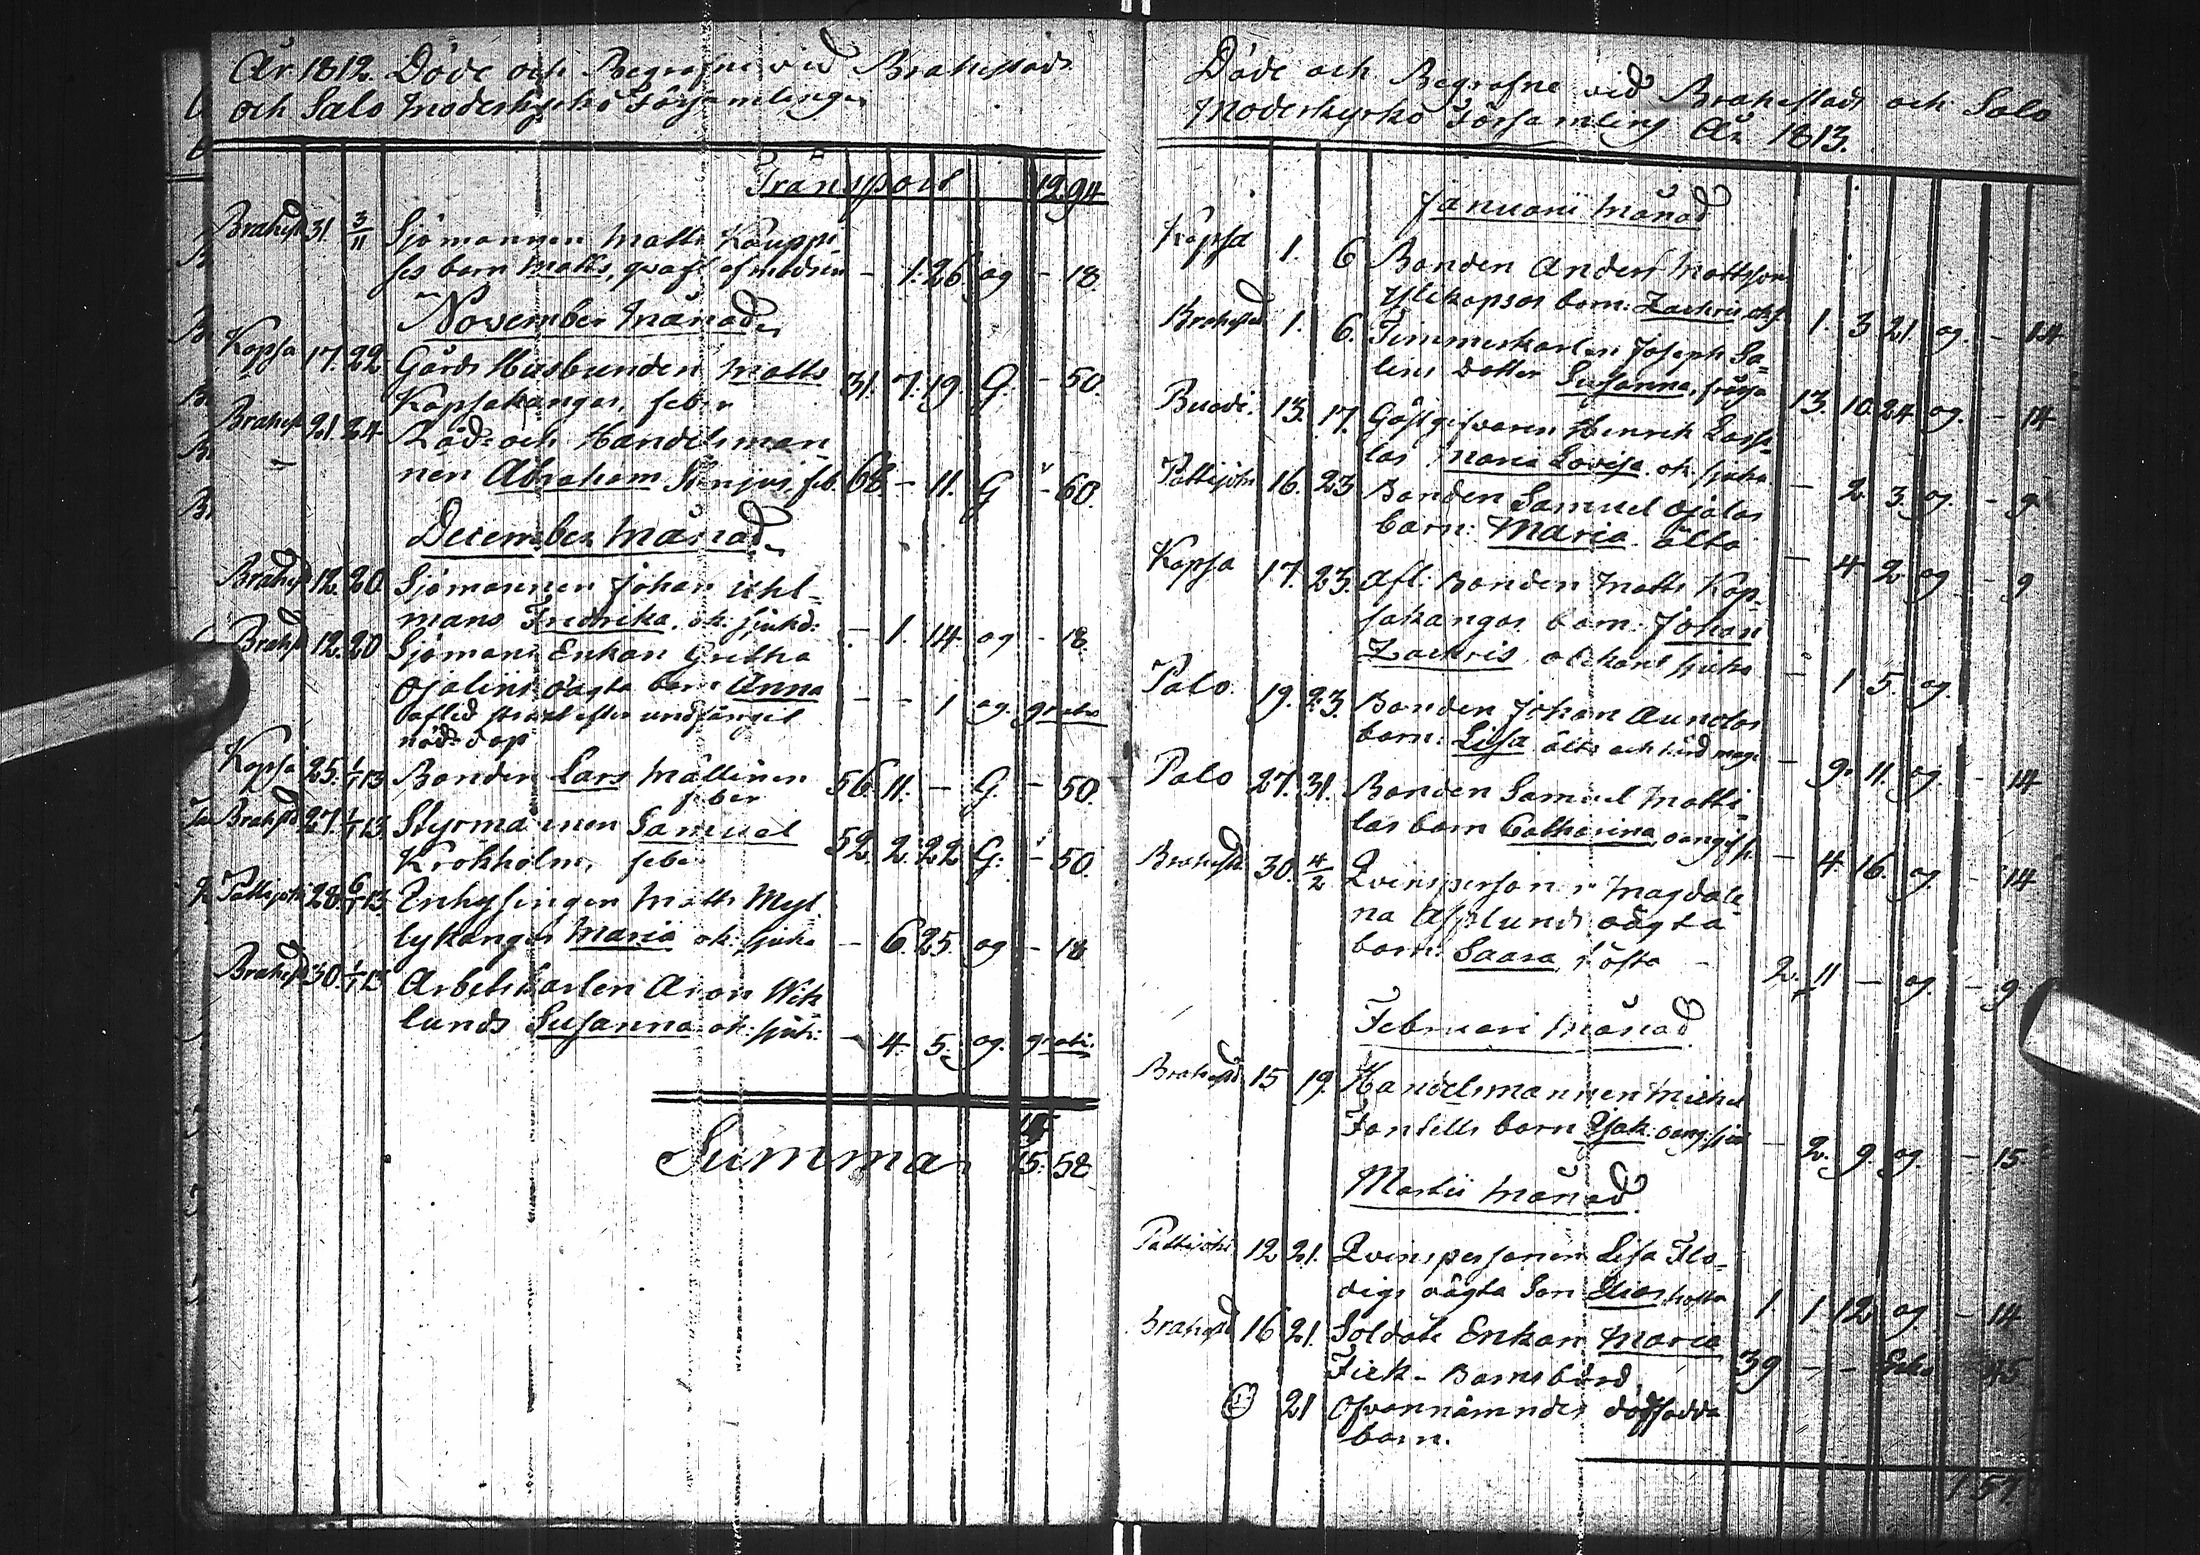 År 1812. Döde och Begrafne vid Brahestads
och Salo Moderkyrko Församlingar
Transport 12.94
Brahest. 31. 3/11 Sjömannen Matts Kauppi-
ses barn Matts, qväfd af modren - 1. 26 og - 18.
November Månad
Kopsa 17. 22 Gårds Husbunden Matts 31. 7. 19. G. - 50.
Kopsakangas, feber
Brahest. 21. 24 Råd- och Handelsman-
nen Abraham feb. 68. - 11. G - 60.
December Månad
Brahest. 12. 20. Sjömannen Johan Uhl-
mans Fredrika, ok. sjukd: - 1. 14 og - 18.
Brahest. 12. 20 Sjömans Enkan Gretha
Ojalins oägta barn Anna - - 1 og. gratis
aflid. strax efter undfånget
nöd-dop
Kopsa 25. 1/1 13 Bonden Lars Mällinen 56. 11. - G. - 50.
feber
Brahestd 27. 1/1 13 Styrmannen Samuel 52. 2. 22 G: - 50.
Krokholm, feber
Pattijoki 28. 6/1 13 Inhysingen Matts Myl-
lykangas Maria ok: sjuka - 6. 25. og - 18
Brahest. 30. 1/1 13 Arbetskarlen Aron Wik-
lunds Susanna ok: sjuk: - 4. 5. og. gratis.
Summa 15. 58
Döde och Begrafne vid Brahestads och Salo
Moderkyrko Församling År 1813.
Januarii Månad
Kopsa 1. 6 Bonden Anders Mattsson
Ylikopsas barn: Zachris 1. 3 21. og. - 14
Brahestad 1. 6. Timmerkarlen Joseph Sa-
lins dotter Susanna, 13. 10. 24 og. - 14
13. 17. Gästgifvaren Henrik Lassi-
las Maria Lovisa ok. sjuka - 2 3. og. - 9
Pattijoki 16. 23 Bonden Samuel Ojalas
barn: Maria älta - 4 2 og - 9
Kopsa 17. 23. Afl: Bonden Matts Kop-
sakangas barn: Johan
Zachris, obekant sjuka - 1 5. og.
Palo. 19. 23. Bonden Johan Aunolas
barn: Lisa älta och hård mage - 9. 11. og - 14
Palo 27. 31. Bonden Samuel Matti-
las barn Catharina, - 4. 16. og - 14
Brahestd. 30. 4/2 Qvinspersonen Magdale-
na Asplunds oägta
barn: Saara, hosta - 2. 11 - og. - 9
Februarii Månad
Brahestd 15 19. Handelsmannen Michel
Fontells barn - 2. 9. og. - 15.
Martii Månad
Pattijoki 12 21. Qvinspersonen Lisa Flo-
digs oägta Son Elias, hosta 1 1 12 og - 14
Brahestd 16 21. Soldats Enkan Maria 39 - - 45
Fick - Barnsbörd
21 Ofvannämndes dödfödda
barn.
1 57.